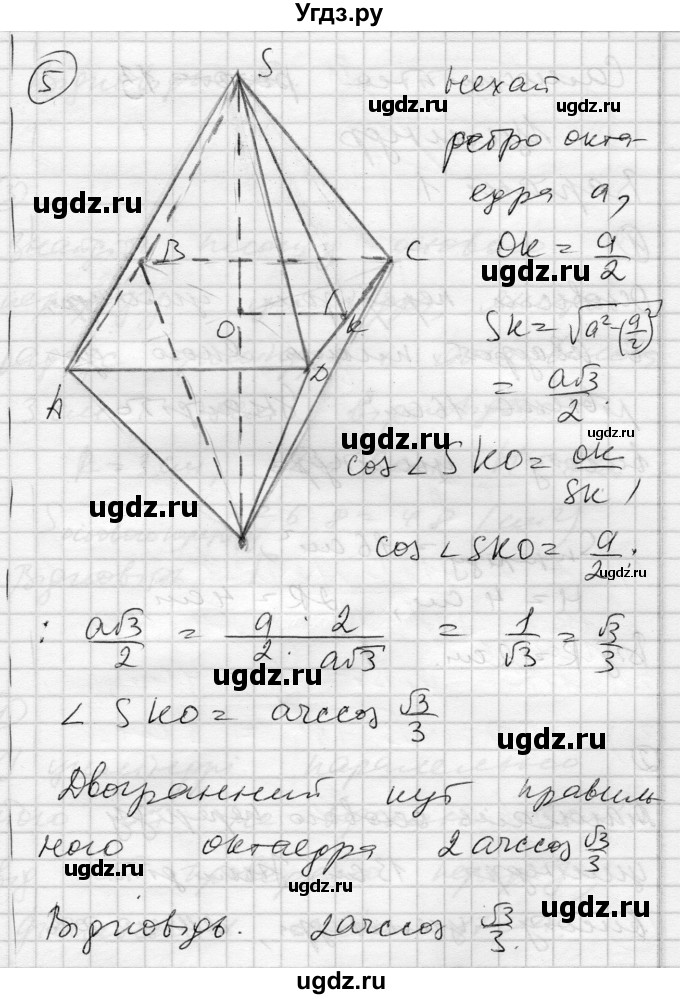 Угдз.ру
5
S
B
C
O
K
A
D
нехай
ugdz.ru ugdz.ru
ребро окта-
ugdz.ru
едра a,
ugdz.ru
OK = a/2
SK = √(a² - (a/2)²)
ugdz.ru
= a√3/2.
ugdz.ru
ugdz.ru
cos ∠SKO = OK/SK,
ugdz.ru
cos ∠SKO = a/2 :
ugdz.ru
: a√3/2 = a · 2 / 2 · a√3 = 1/√3 = √3/3
ugdz.ru
∠SKO = arccos √3/3
ugdz.ru
Двогранний кут правиль
ного октаедра 2 arccos √3/3
ugdz.ru
ugdz.ru
ugdz.ru
Відповідь. 2 arccos √3/3.
ugdz.ru